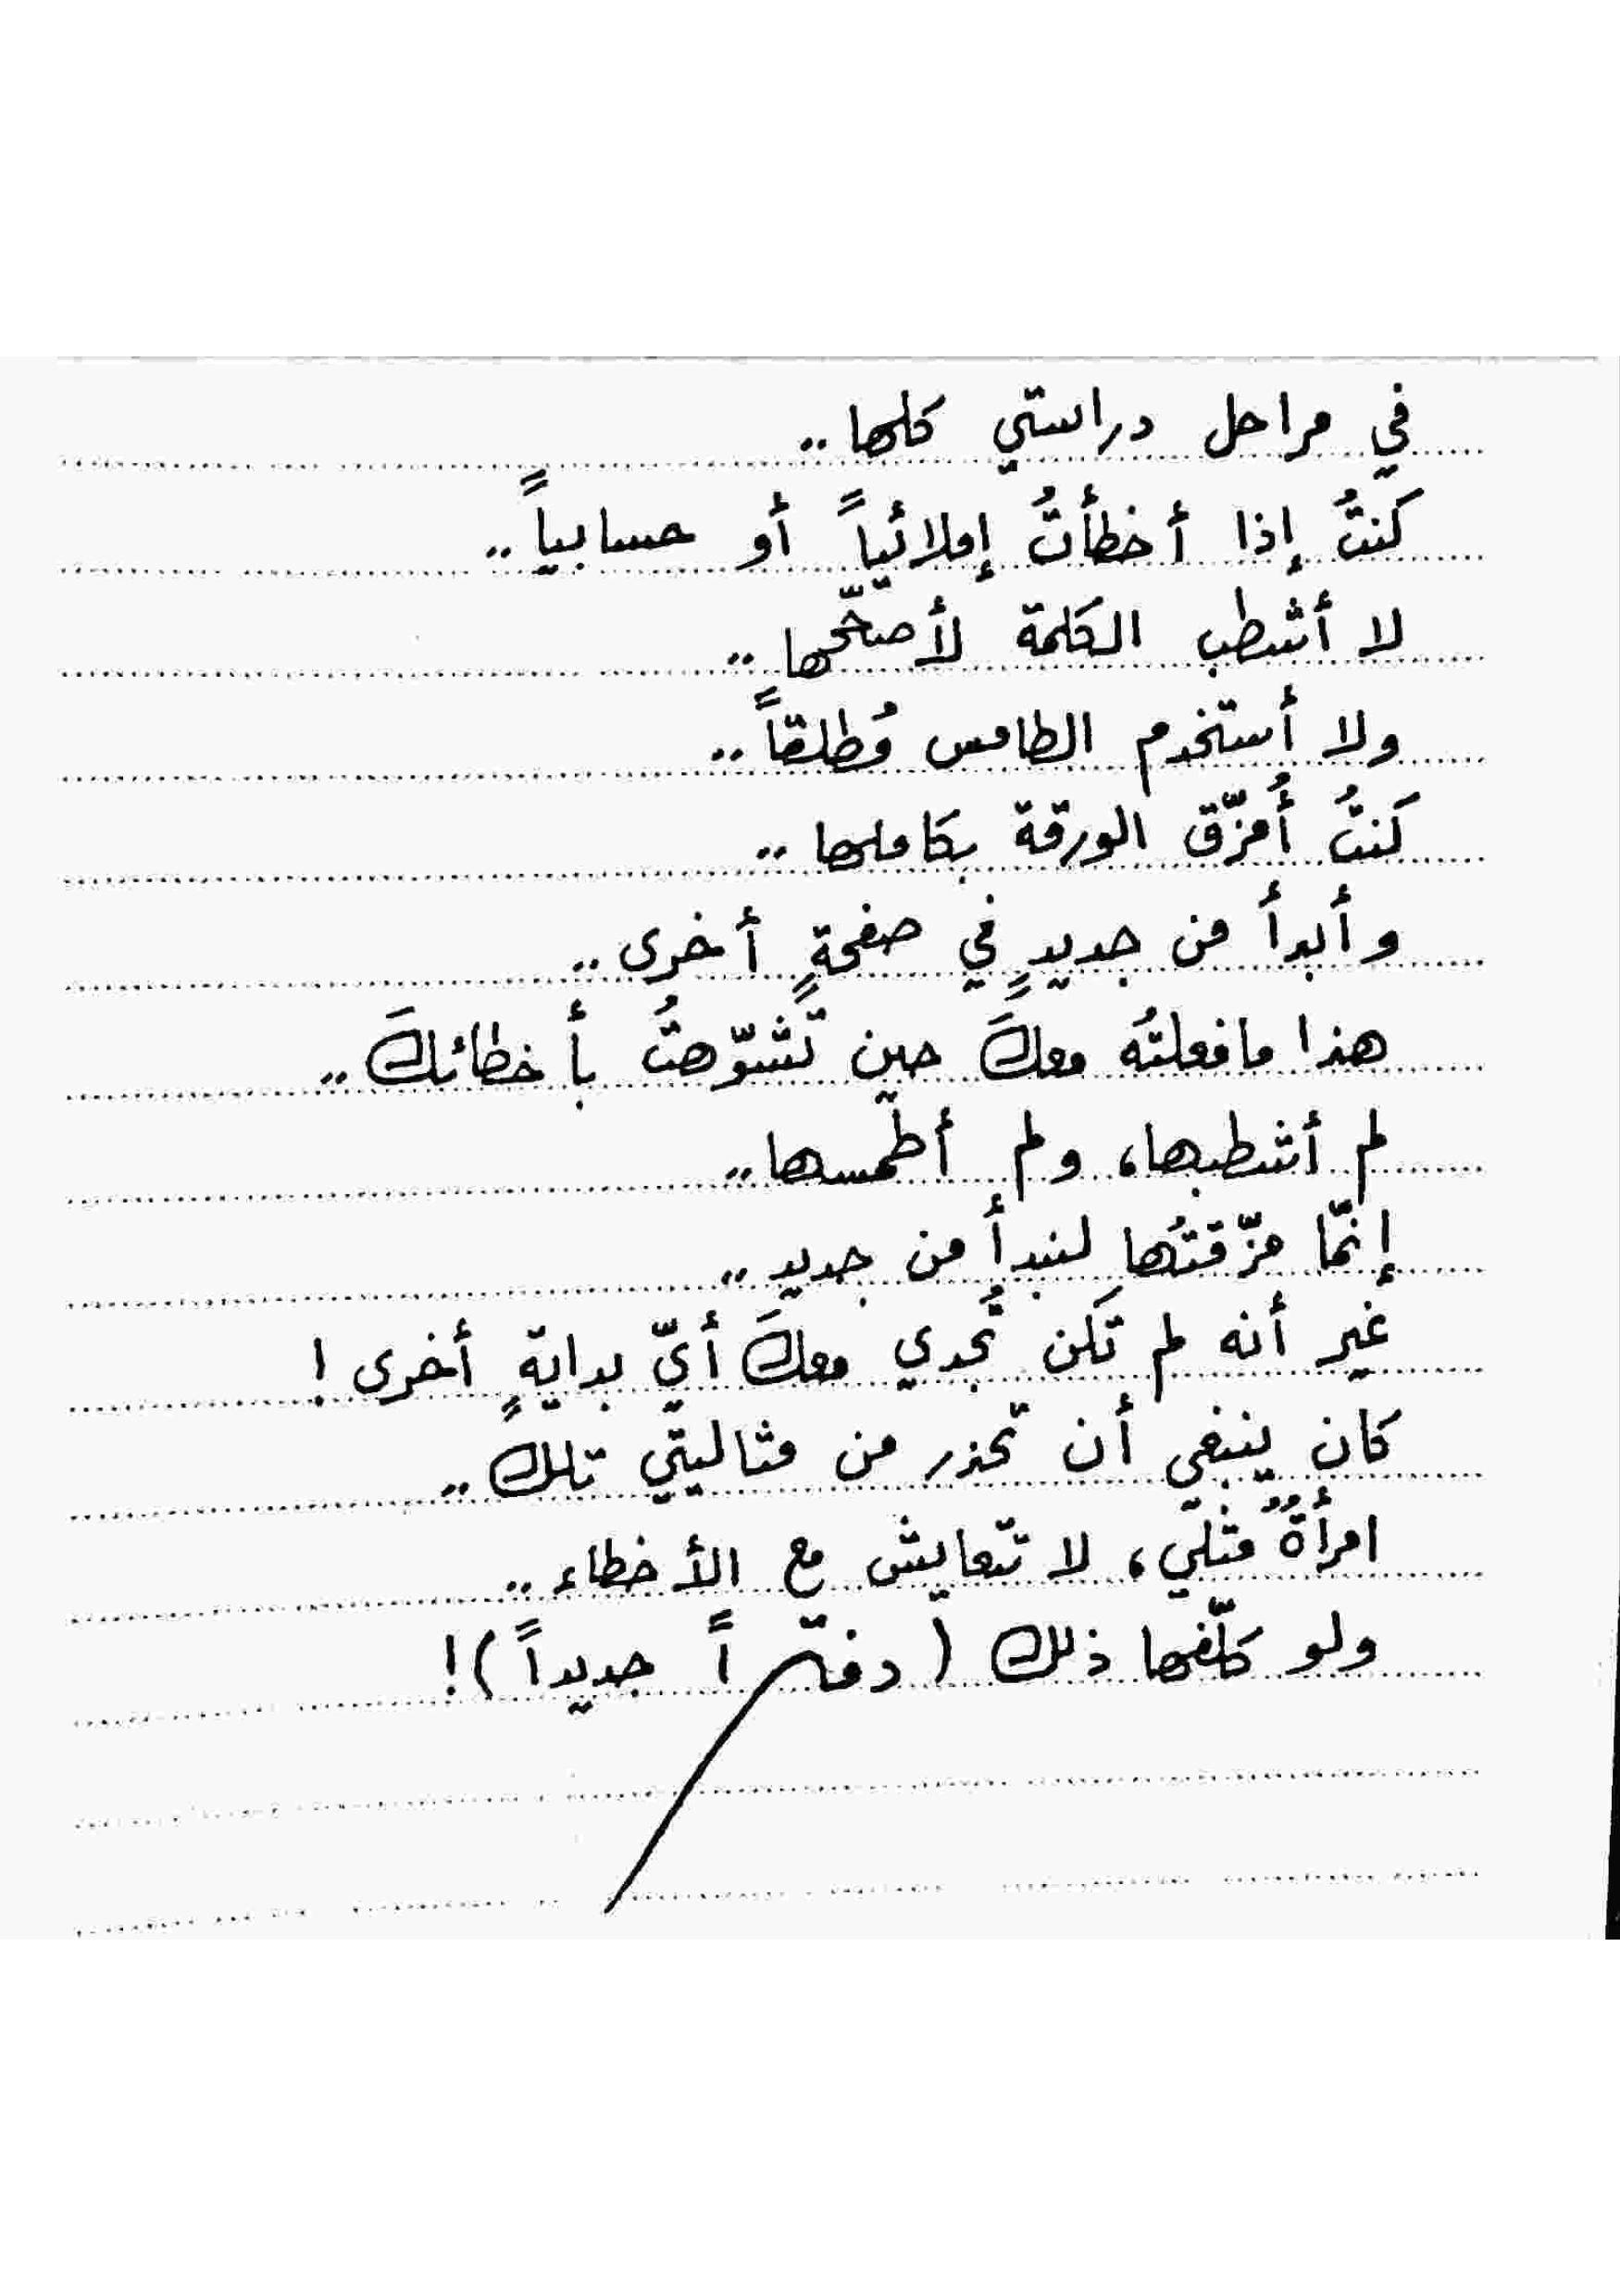 في مراحل دراستي كلها..
كَنتُ إذا أخطأتُ إملائياً أو حسابياً..
لا أشطب الكلمة لأصحّحها..
ولا أستخدم الطامس مُطلقاً..
كَنتُ أُمزّق الورقة بكاملها..
وأبدأ من جديدٍ في صفحةٍ أخرى..
هذا ما فعلتُه معكَ حين تَشوّهتُ بأخطائكَ..
لم أشطبها، ولم أطمسها..
إنّما مزّقتُها لنبدأ من جديد..
غير أنه لم تكَن تُجدي معكَ أيّ بدايةٍ أخرى!
كان ينبغي أن تحذر من مثاليتي تلك..
امرأةٌ مثلي، لا تتعايش مع الأخطاء..
ولو كلّفها ذلك (دفتراً جديداً)!